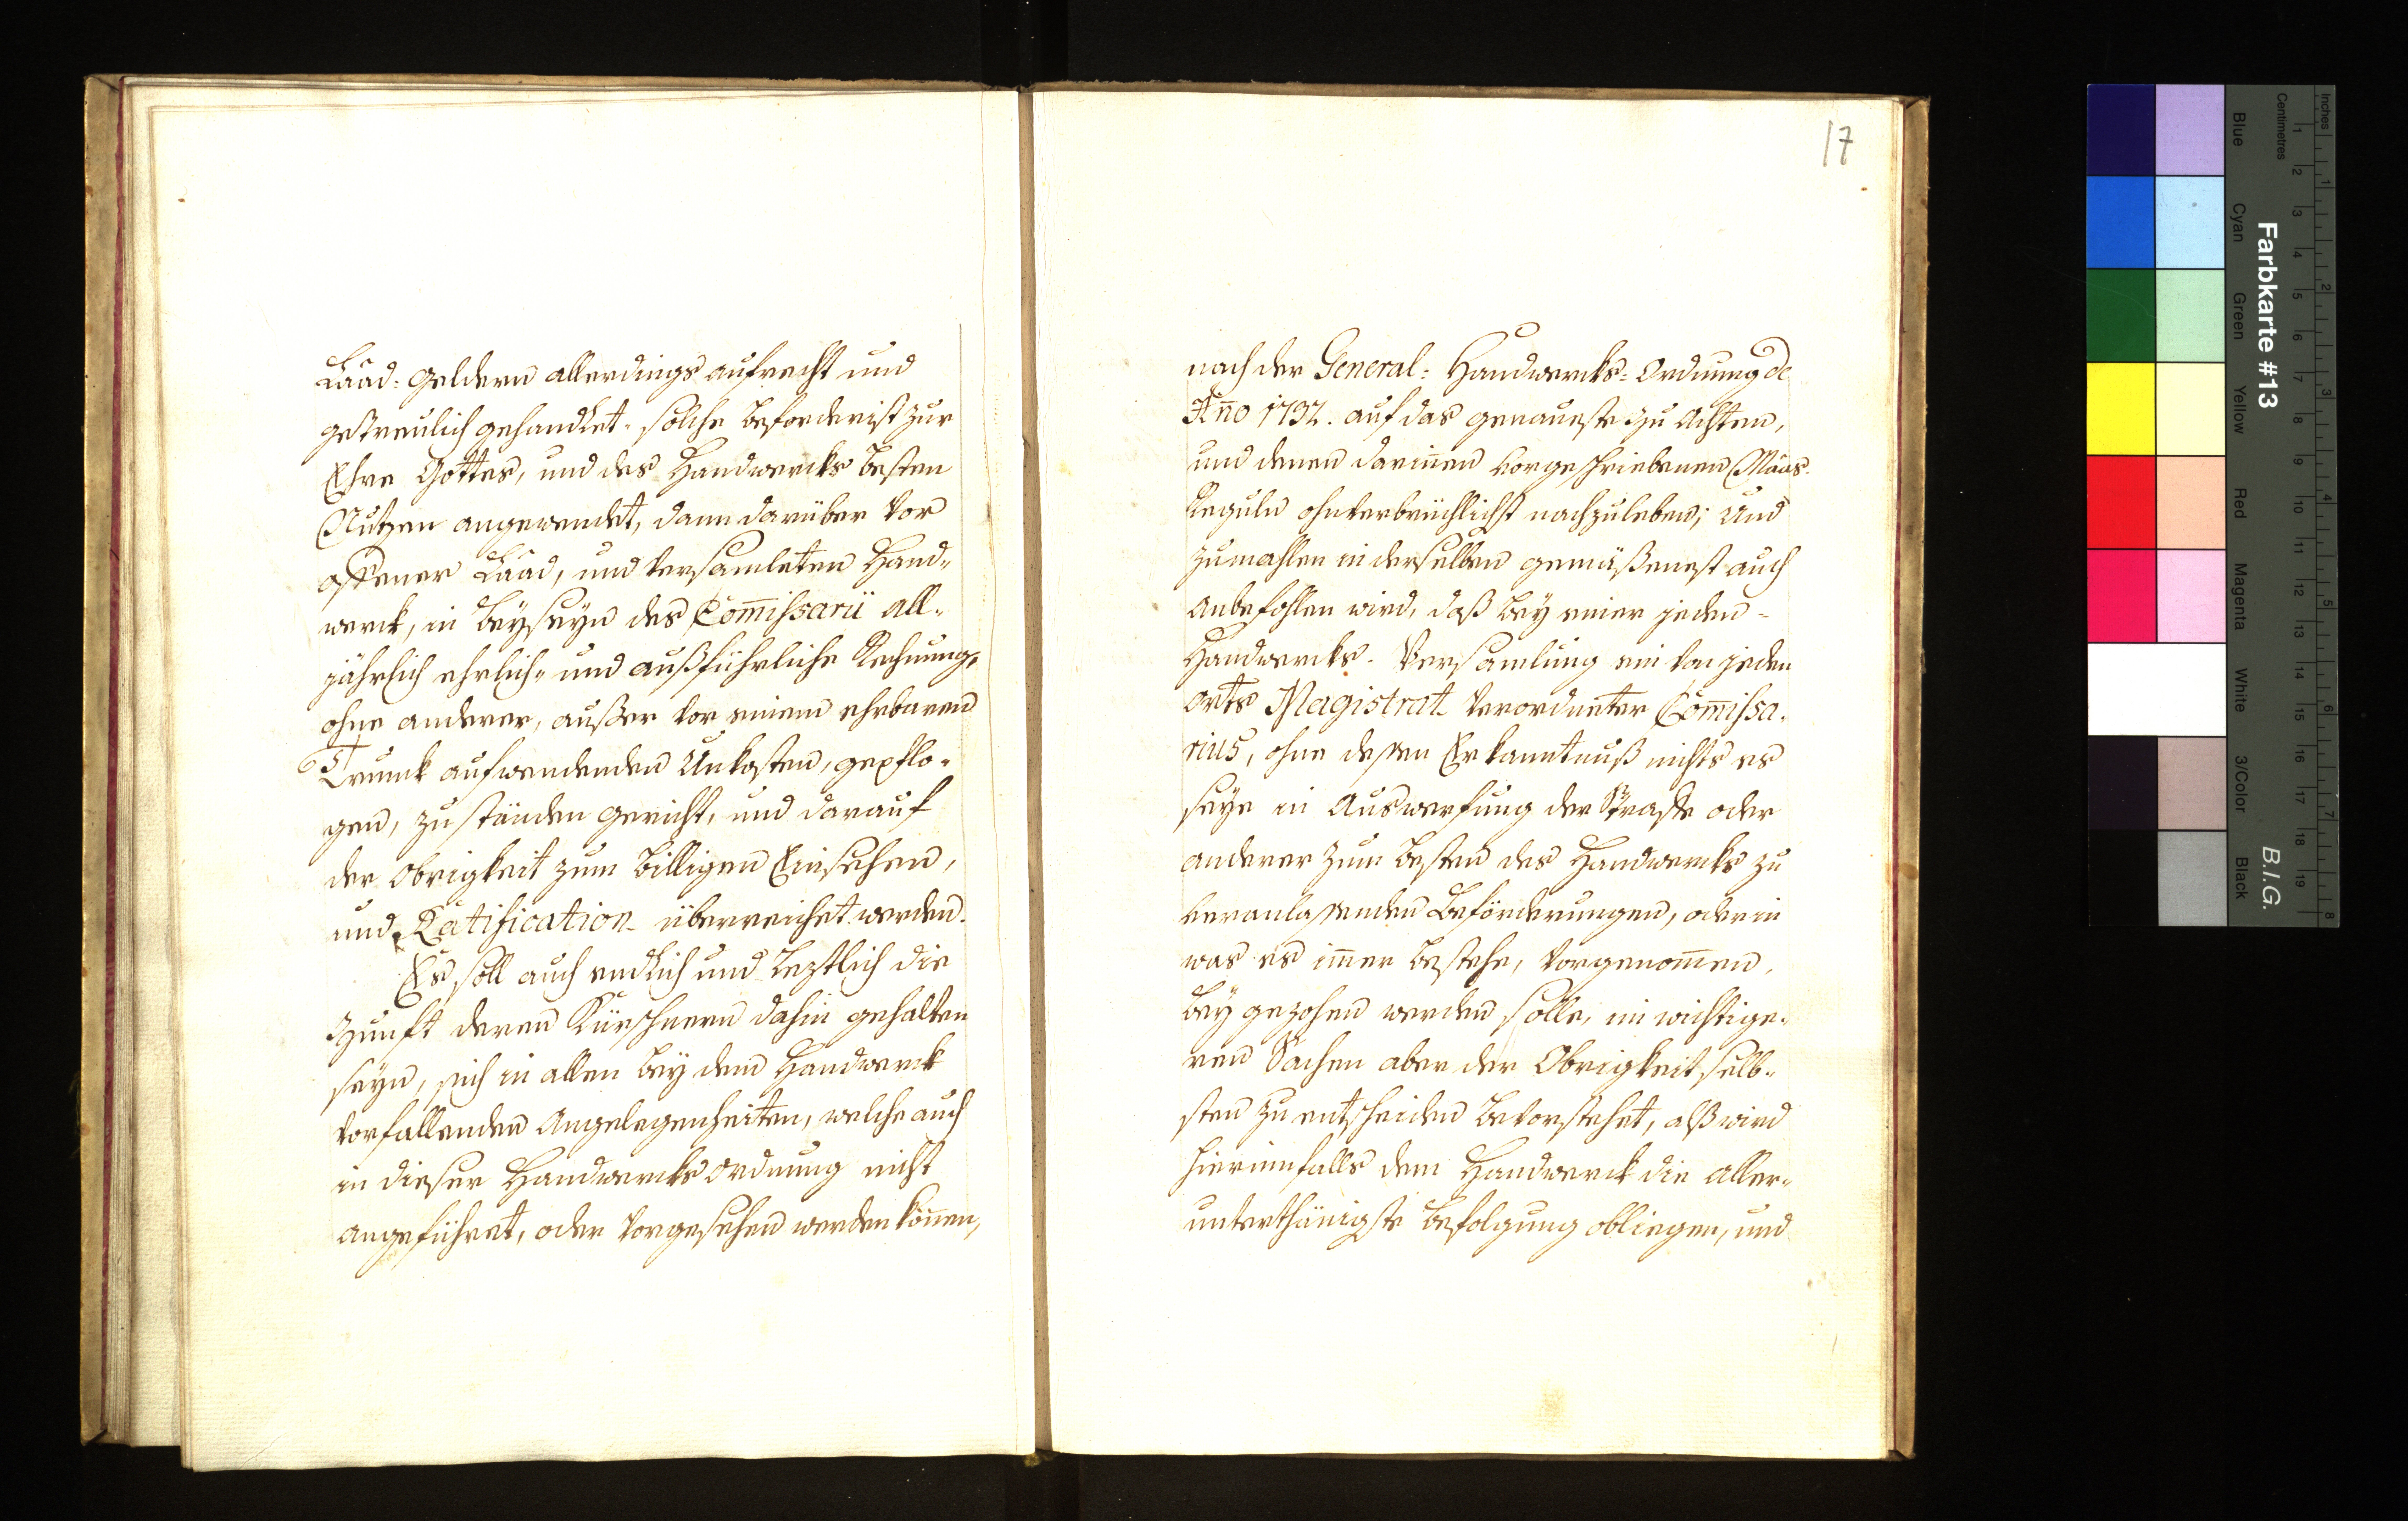 Laad: Geldern allerdings aufrecht und
getreulich gehandlet, solche beforderist zur
Ehre Gottes, und des Handwercks besten
Nutzen angewendet, dann darüber vor
offener Laad, und versamleten Hand„
werck, in Beyseyn des Com̄issarii all„
jährlich ehrlich„ und außführliche Rechnung,
ohne anderer, außer vor einem ehrbaren
Trunck aufwendenden Unkosten, gepflo„
gen, zu standen gericht, und darauf
der Obrigkeit zum billigen Einsehen,
und Ratification überreichet werden.
Es soll auch endlich und leztlich die
Zunft deren Kürschnern dahin gehalten
seyn, sich in allen bey dem Handwerck
vorfallenden Angelegenheiten, welche auch
in dieser Handwercks Ordnung nicht
angeführet, oder vorgesehen werden kön̄en,
17
nach der General: Handwercks: Ordnung de
An̄o 1732. auf das genaueste zu achten,
und denen darin̄en vorgeschriebenen Maas„
Reguln ohnverbrüchlichst nachzuleben; Und
zumahlen in derselben gemäßenest auch
anbefohlen wird, daß bey einer jeden„
Handwercks„ Versamlung ein von jeden
Orts Magistrat verordneter Com̄issa„
rius, ohne dessen Erkanntnuß nichts es
seye in Auswerfung der Straffe oder
anderer zum besten des Handwercks zu
veranlassenden Beförderungen, oder in
was es im̄er bestehe, vorgenom̄en,
beygezohen werden solle, in wichtige„
ren Sachen aber der Obrigkeit selb„
sten zu entscheiden bevorstehet, alß wird
hierinnfalls dem Handwerck die aller„
unterthänigste Befolgung obliegen, und
Farbkarte #13
B.I.G.
Inches
Centimetres
Blue
Cyan
Green
Yellow
Red
Magenta
White
3/Color
Black